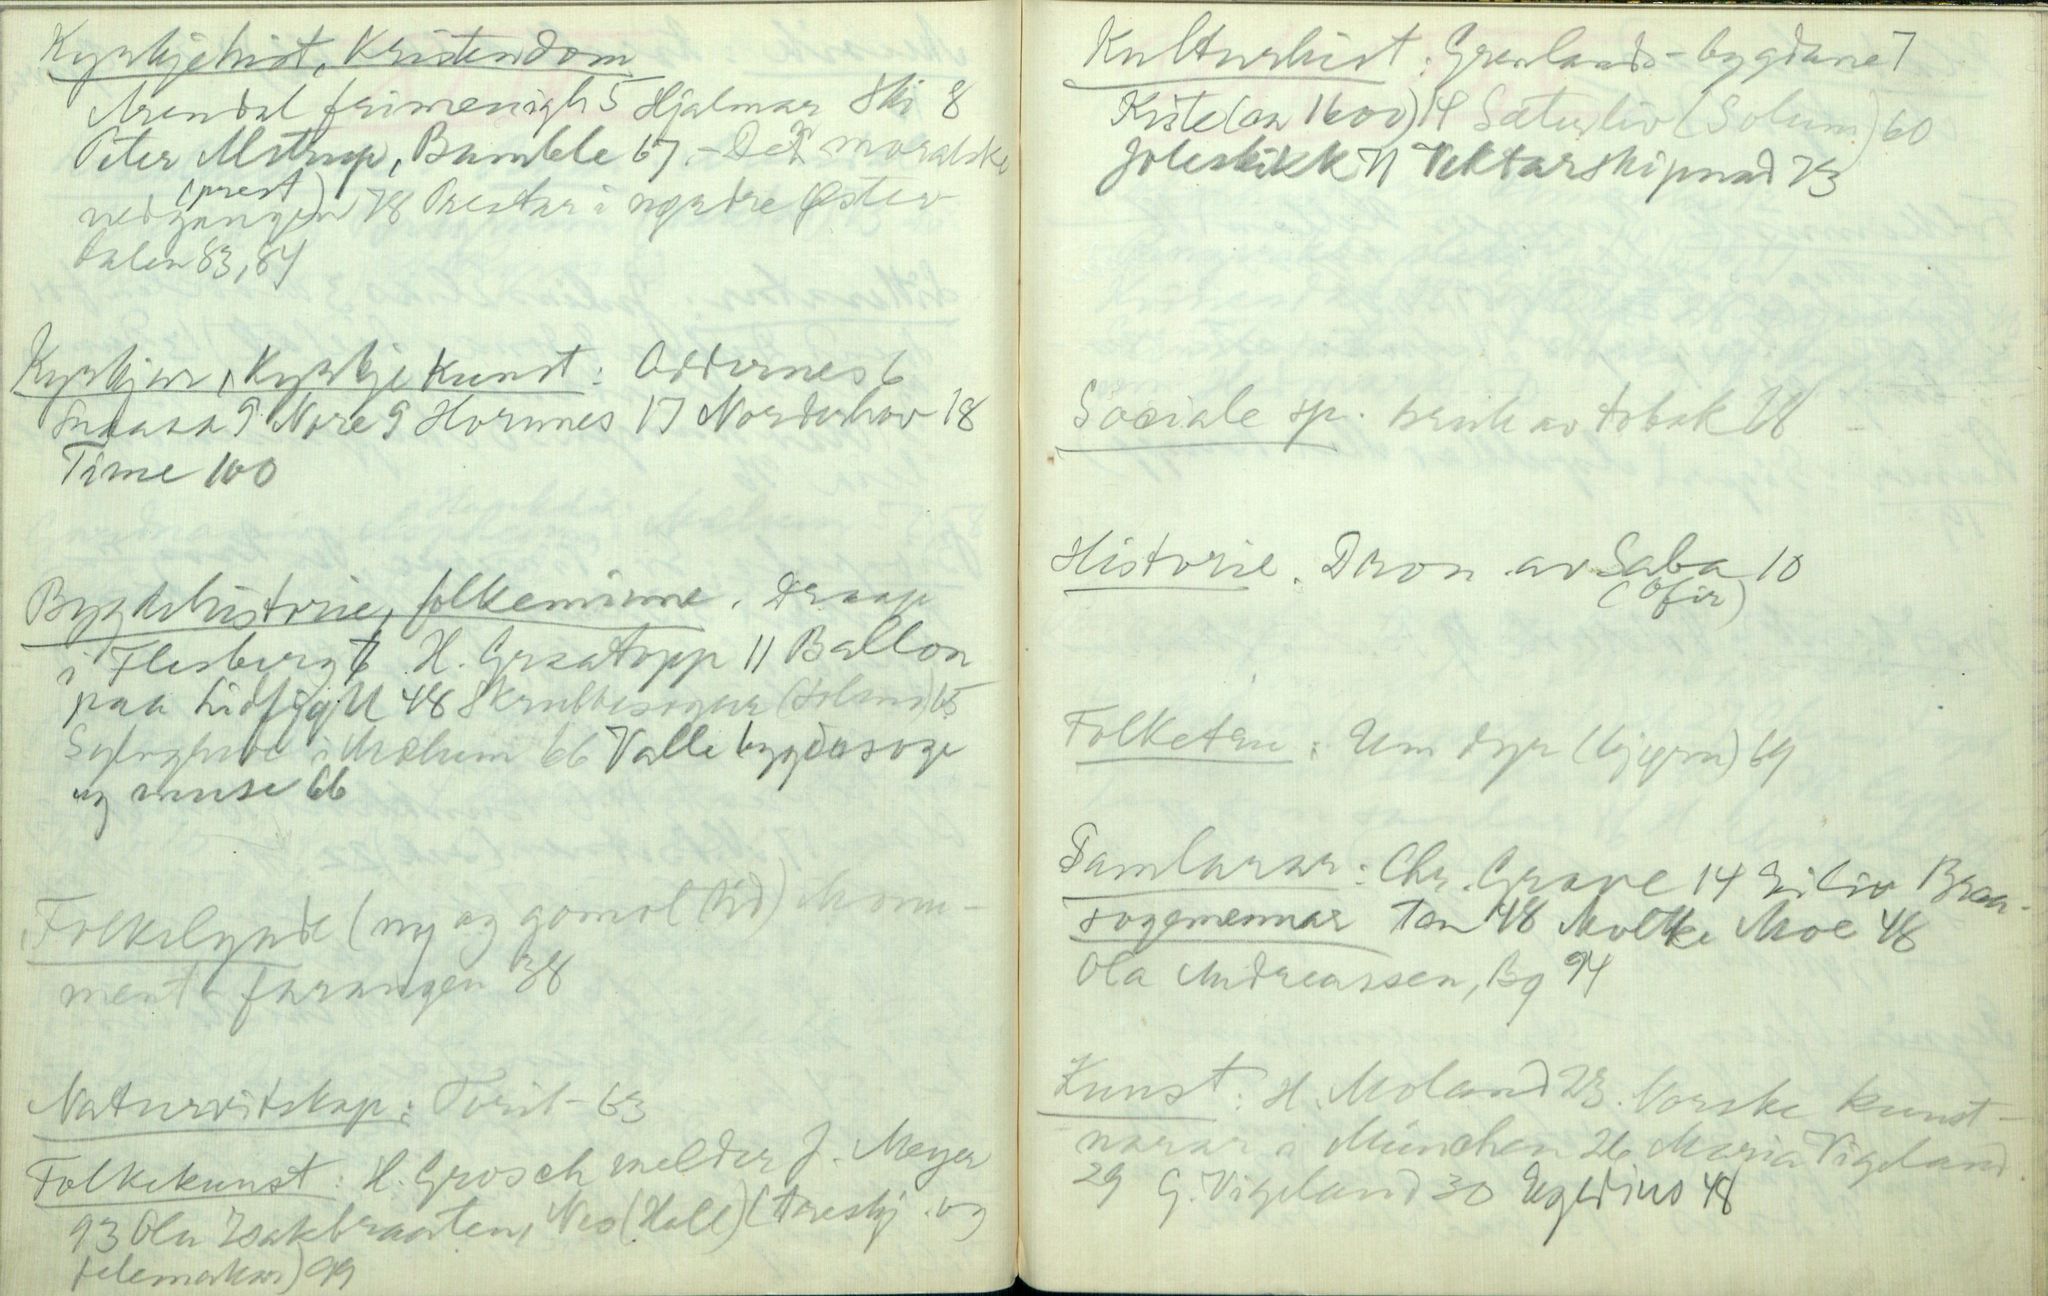 Kyrkjehist, Kristendom
Arendal frimenigh 5 Hjalmar Ski 8
Peter Alstrup, Bamble 67. - Den moralske
(prest)
nedgangen 78 Prestar i nyrdre Øster
dalen 83, 84
Kyrkjur, Kyrkjekunst: Oddernes 6
Snaasa 9 Nore 9 Hornnes 17 Norderhov 18
Time 100
Bygdehistorie, folkeminne. Draap
i Flesberg 6 H. Graatopp 11 Ballon
paa Lidfjell 48 Skrubbesogur (Holand) 65
i Melum 66 Valle bygdasoge
og muse 66
Folkelynde (ny og gomol tid) Monu-
ment 38
Naturvitskap: Torit - 63
Folkekunst: H. Grosch melder J. Meyer
93 Ola Isakbraaten, Nes (Hall) (treskj. og
telemarkar) 99
Kulturhist: Grenlands-bygdane 7
Kiste (aa 1600) 14 Sæterliv (Solum) 60
Joleskikk 71 Vektarskipnad 73
Sociale sp. bruk av tobak 28
Historie. Dron. av Saba 10
(Ofir)
Folketru: Um dyr (bjørn) 69
Samlarar: Chr. Grave 14 Eiliv Braa-
sogemennar tan 48 Moltke Moe 48
Ola Andreassen, Bø 94
Kunst: H. Moland 23. Norske kunst-
narar i München 26 Maria Vigeland
29 G. Vigeland 30 Egedius 48